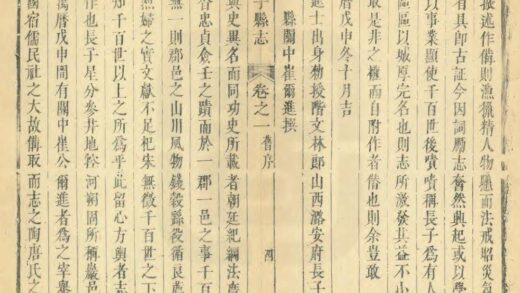 按述作備則漁獵精人物雖而法戒昭災氣
者具即古証今因詞勵志奮然興起或以學
以事業顯使千百世後嘖嘖稱長子為有人
區區以城厚完名也則志所激發其益不小
取是非之權而自附作者僭也則余豈敢
曆戊申冬十月吉
進士出身勑授階文林郎山西潞安府長子
縣關中崔爾進撰
子縣志 卷之一 舊序 四
與史異名而同功史所載者朝廷紀綱法度
忠貞僉壬之蹟而於一郡一邑之事千百
無一則郡邑之山川風物錢穀繇役循良
無歸之實文獻不足杞宋無徵千百世之下
知千百世以上之所為乎此留心方輿者志
作也長子星分參井地絡河朔固所稱巖邑
萬曆戊申間有關中崔公爾進者為之宰舉
國宿儒民社之大故備取而志之陶唐氏之